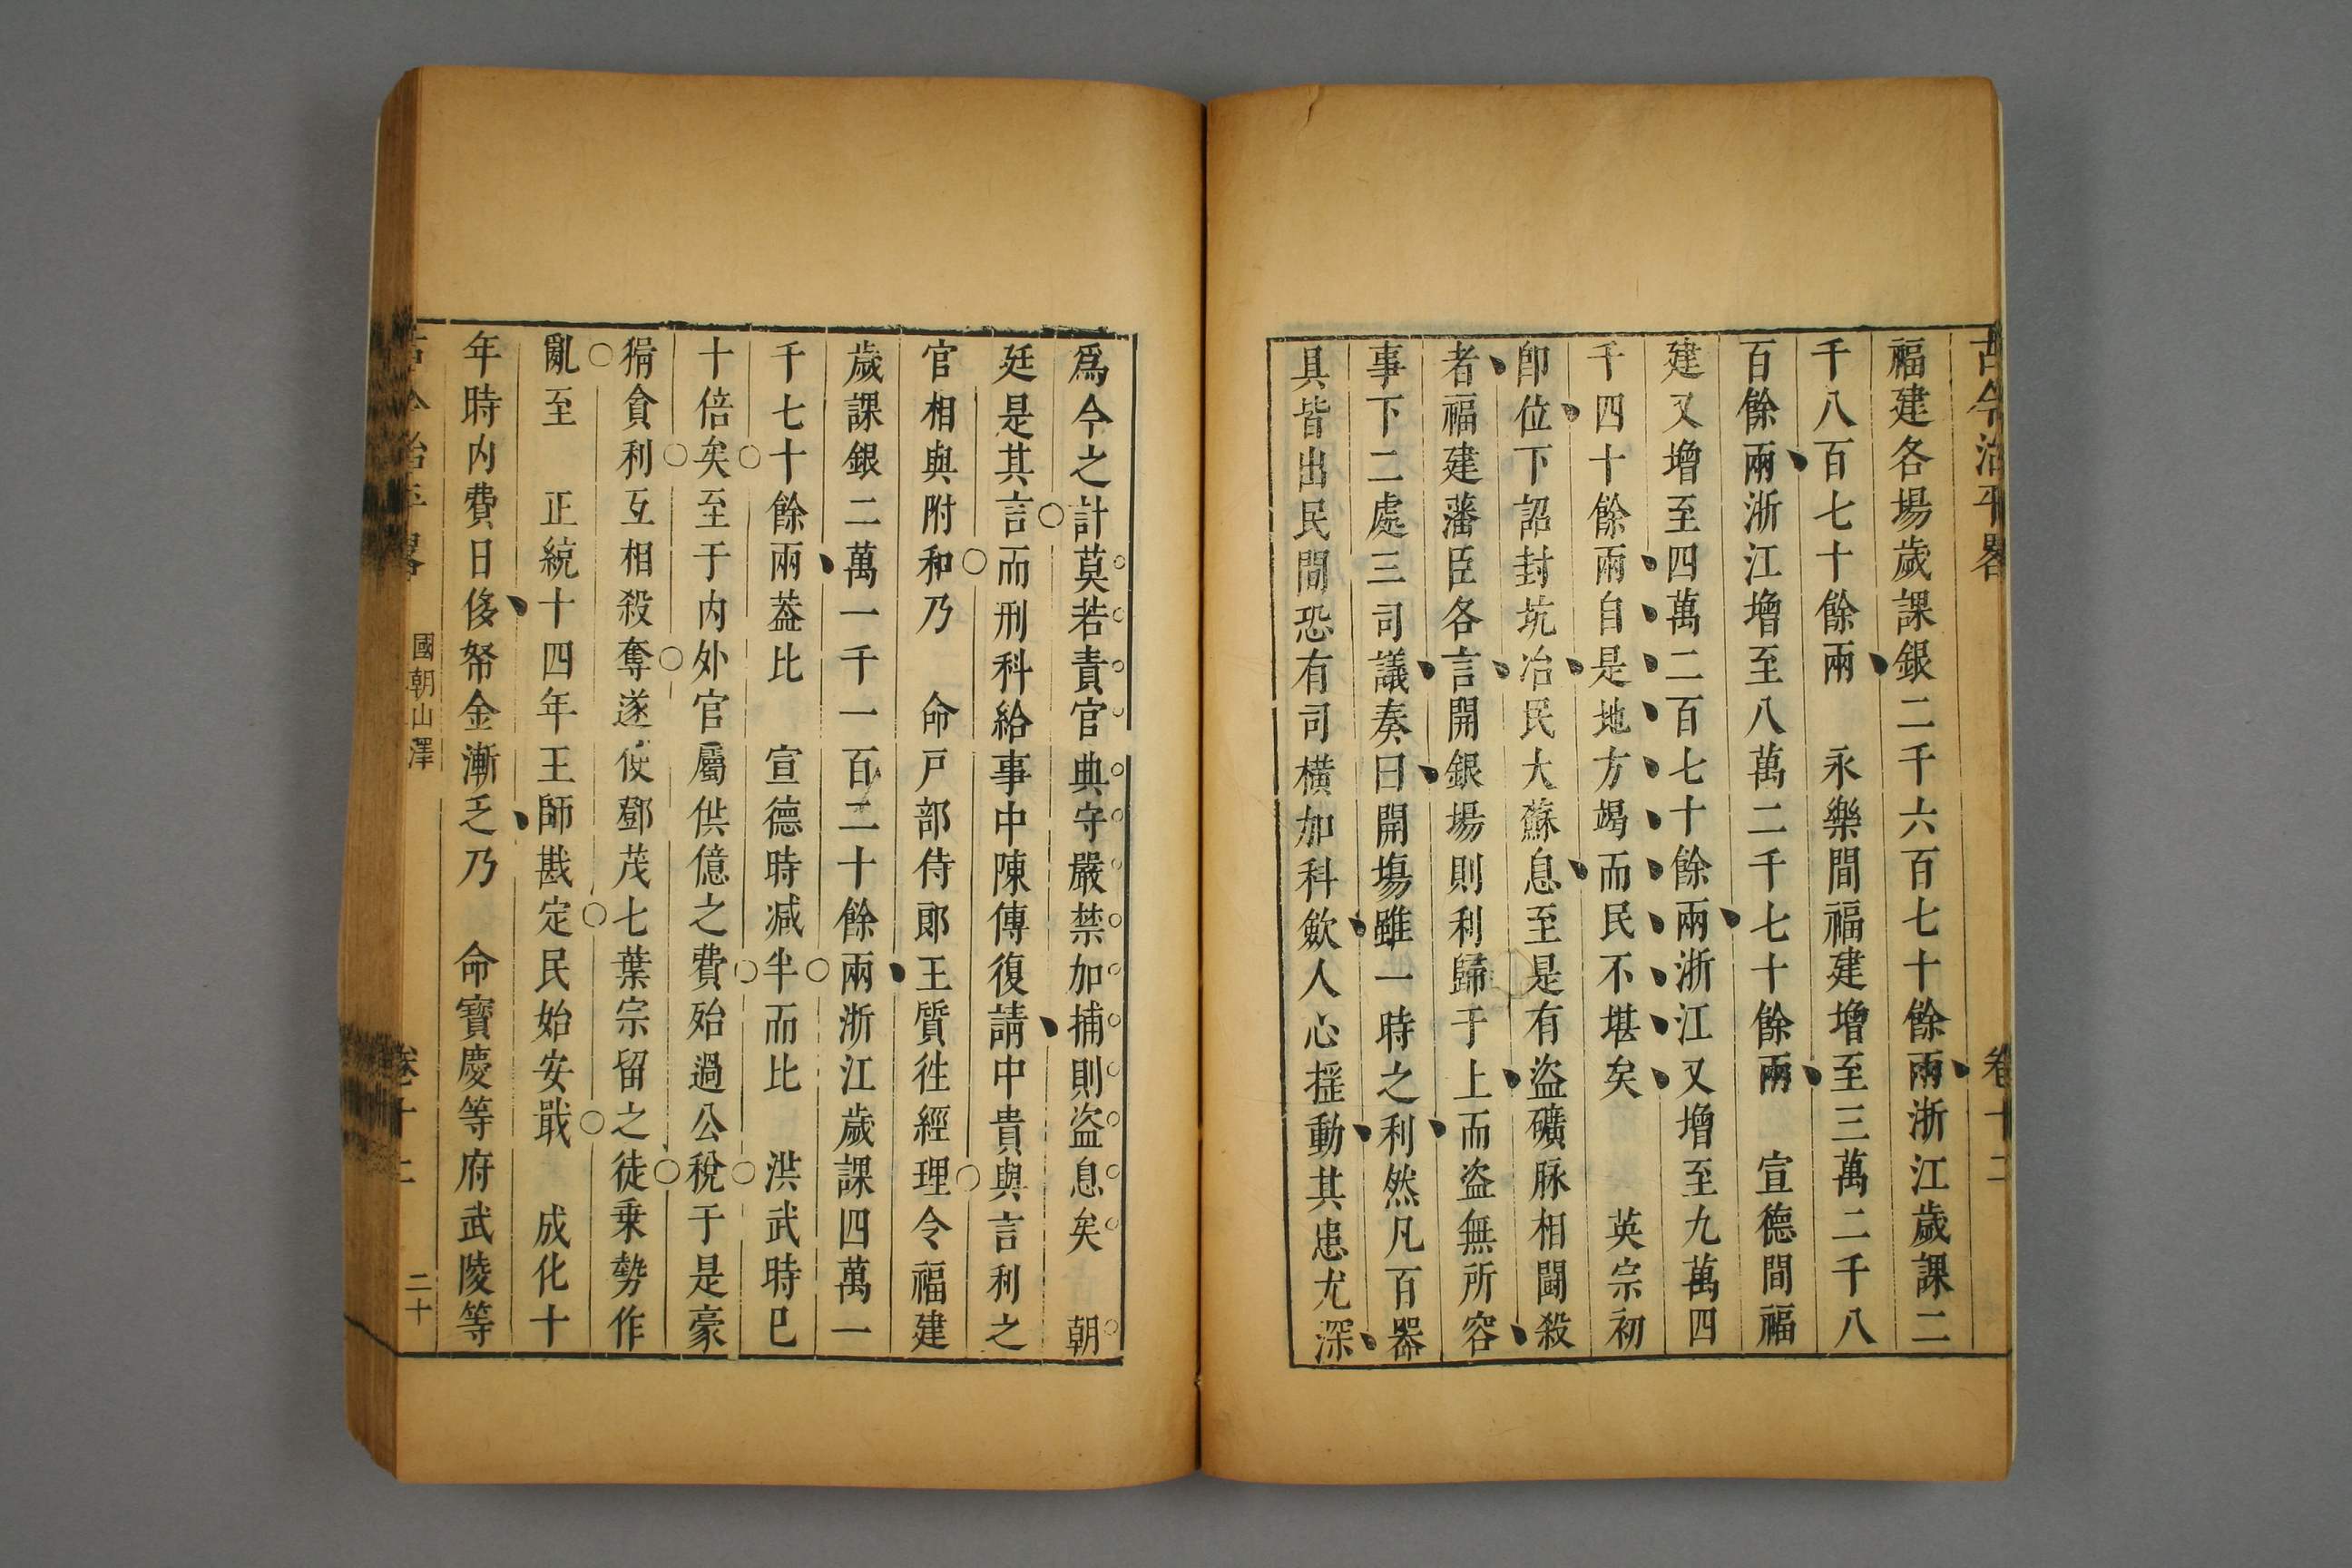 古今治平畧　卷十二
福建各場歲課銀二千六百七十餘兩浙江歲課二
千八百七十餘兩　永樂間福建增至三萬二千八
百餘兩浙江增至八萬二千七十餘兩　宣德間福
建又增至四萬二百七十餘兩浙江又增至九萬四
千四十餘兩自是地方竭而民不堪矣　英宗初
卽位下詔封坑冶民大蘇息至是有盜礦脉相鬭殺
者福建藩臣各言開銀場則利歸于上而盜無所容
事下二處三司議奏曰開塲雖一時之利然凡百器
具皆出民間恐有司橫加科歛人心揺動其患尤深
爲今之計莫若責官典守嚴禁加捕則盜息矣　朝
廷是其言而刑科給事中陳傳復請中貴與言利之
官相與附和乃　命戸部侍郎王質徃經理令福建
歲課銀二萬一千一百二十餘兩浙江歲課四萬一
千七十餘兩葢比　宣德時减半而比　洪武時已
十倍矣至于内外官屬供億之費殆過公稅于是豪
猾貪利互相殺奪遂使鄧茂七葉宗留之徒乗勢作
亂至　正統十四年王師戡定民始安戢　成化十
年時内費日侈帑金漸乏乃　命寶慶等府武陵等
古今治平畧　國朝山澤　卷十二　二十